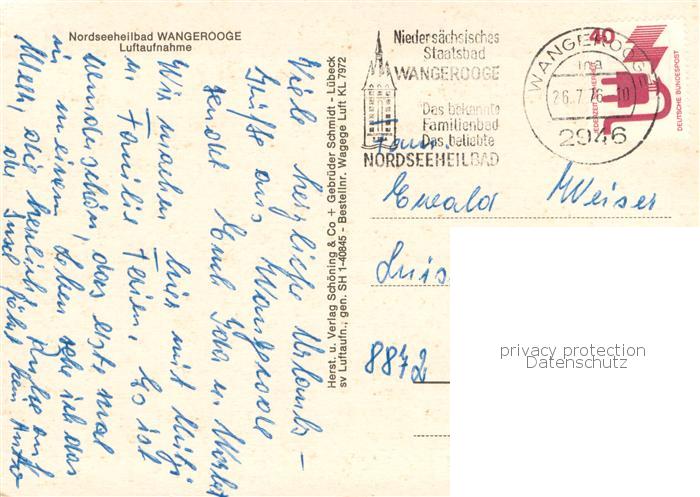 Nordseeheilbad WANGEROOGE
Luftaufnahme
Viele herzliche Urlaubs-
Grüße aus Wangerooge
sendet Euch Ida u. Walter
Wir machen hier mit
u. Familie Ferien. Es ist
wunderschön, das erste mal
in meinem Leben sehe ich das
Meer, die herrliche Ruhe auf
der Insel fährt kein Auto
Herst. u. Verlag Schöning & Co + Gebrüder Schmidt - Lübeck
sv Luftaufn., gen. SH 1-40845 - Bestellnr. Wagege Luft KL 7972
Niedersächsisches
Staatsbad
WANGEROOGE
Das bekannte
Familienbad
Das beliebte
NORDSEEHEILBAD
WANGEROOGE
26.7.76-10
2946
40
JEDERZEIT SICHERHEIT
DEUTSCHE BUNDESPOST
Fam.
Ewald Weiser
Luis
8872
privacy protection
Datenschutz